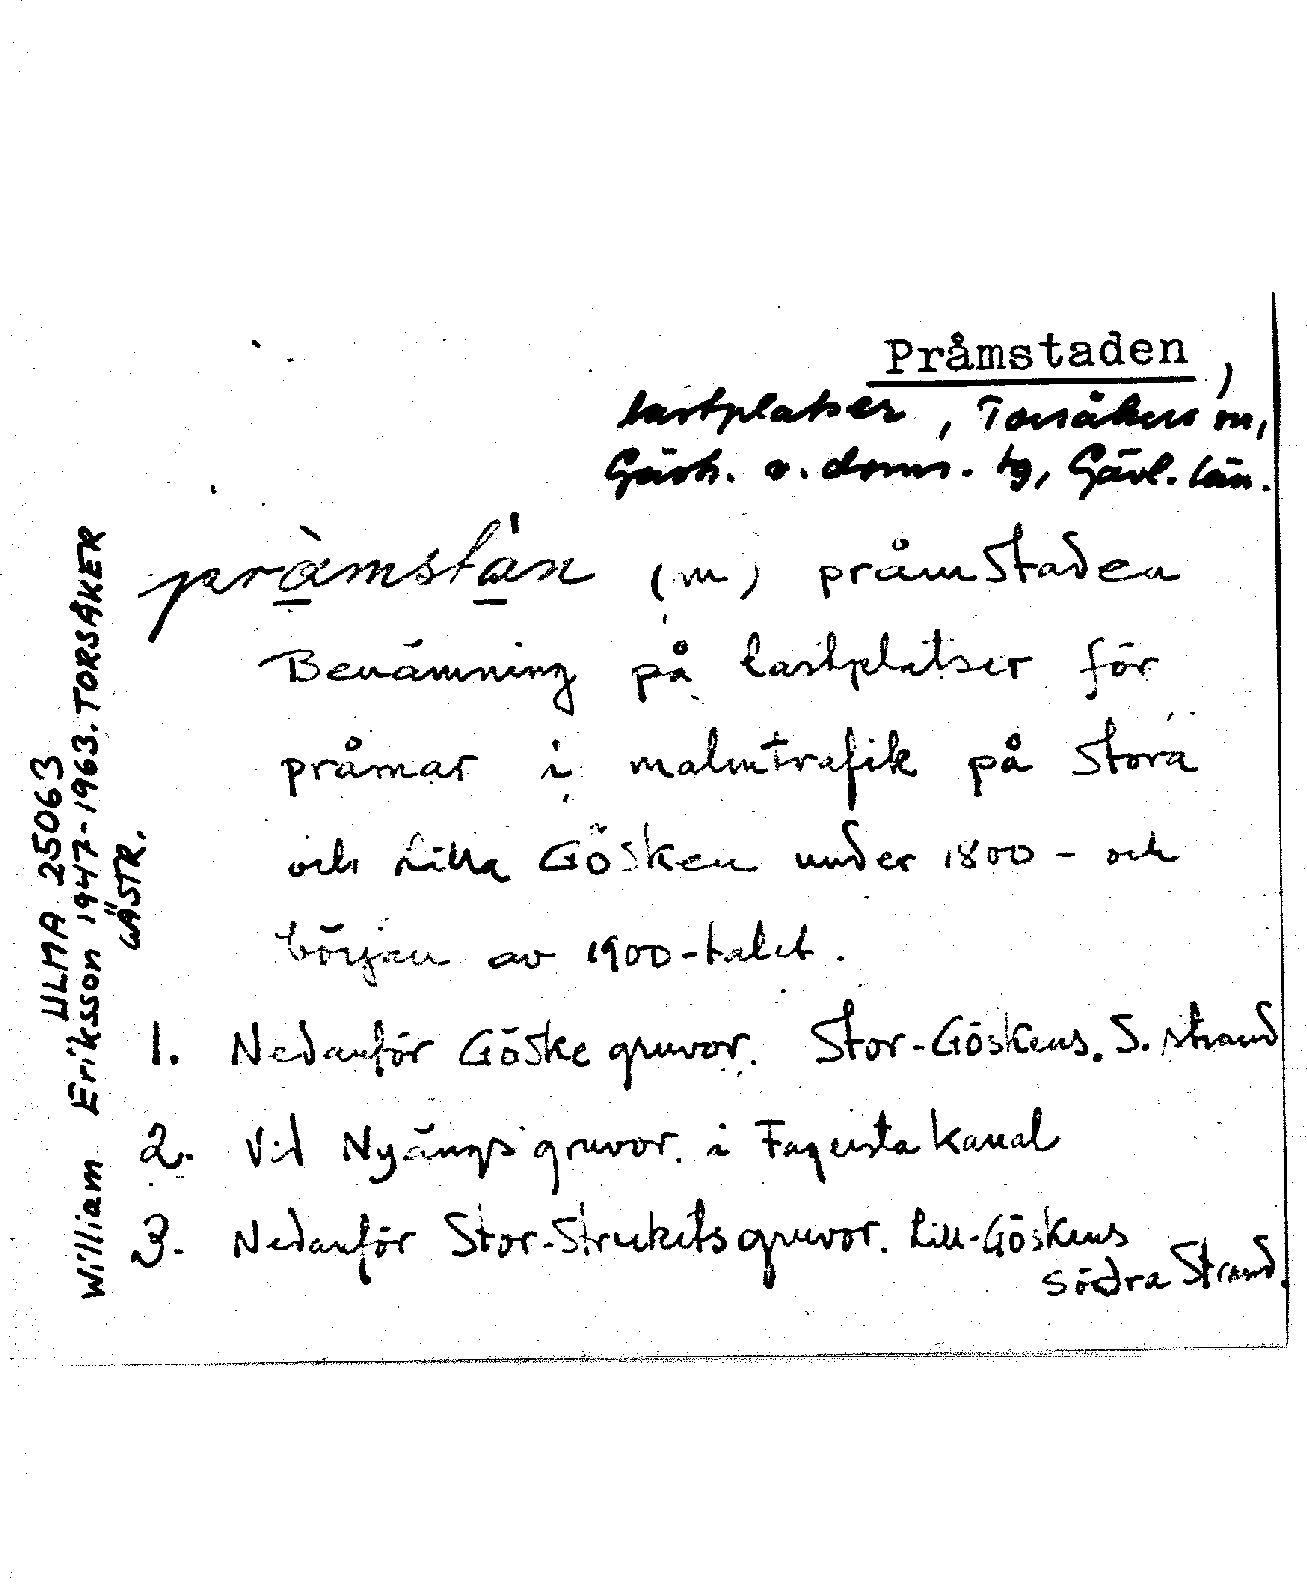 Pråmstaden,
lastplatser, Torsåkers sn,
Gästr. v. doms. tg, Gävl. län.
pràmstàn (m) pråmstaden
Benämning på lastplatser för
pråmar i malmtrafik på Stora
och Lilla Gösken under 1800- och
början av 1900-talet.
1. Nedanför Göske gruvor. Stor-Göskens. S. strand
2. Vid Nyängsgruvor. i Fagersta kanal
3. Nedanför Stor-Strukits gruvor. Lill-Göskens
södra Strand.
ULMA 25063
William Eriksson 1947-1963. TORSÅKER
GÄSTR.